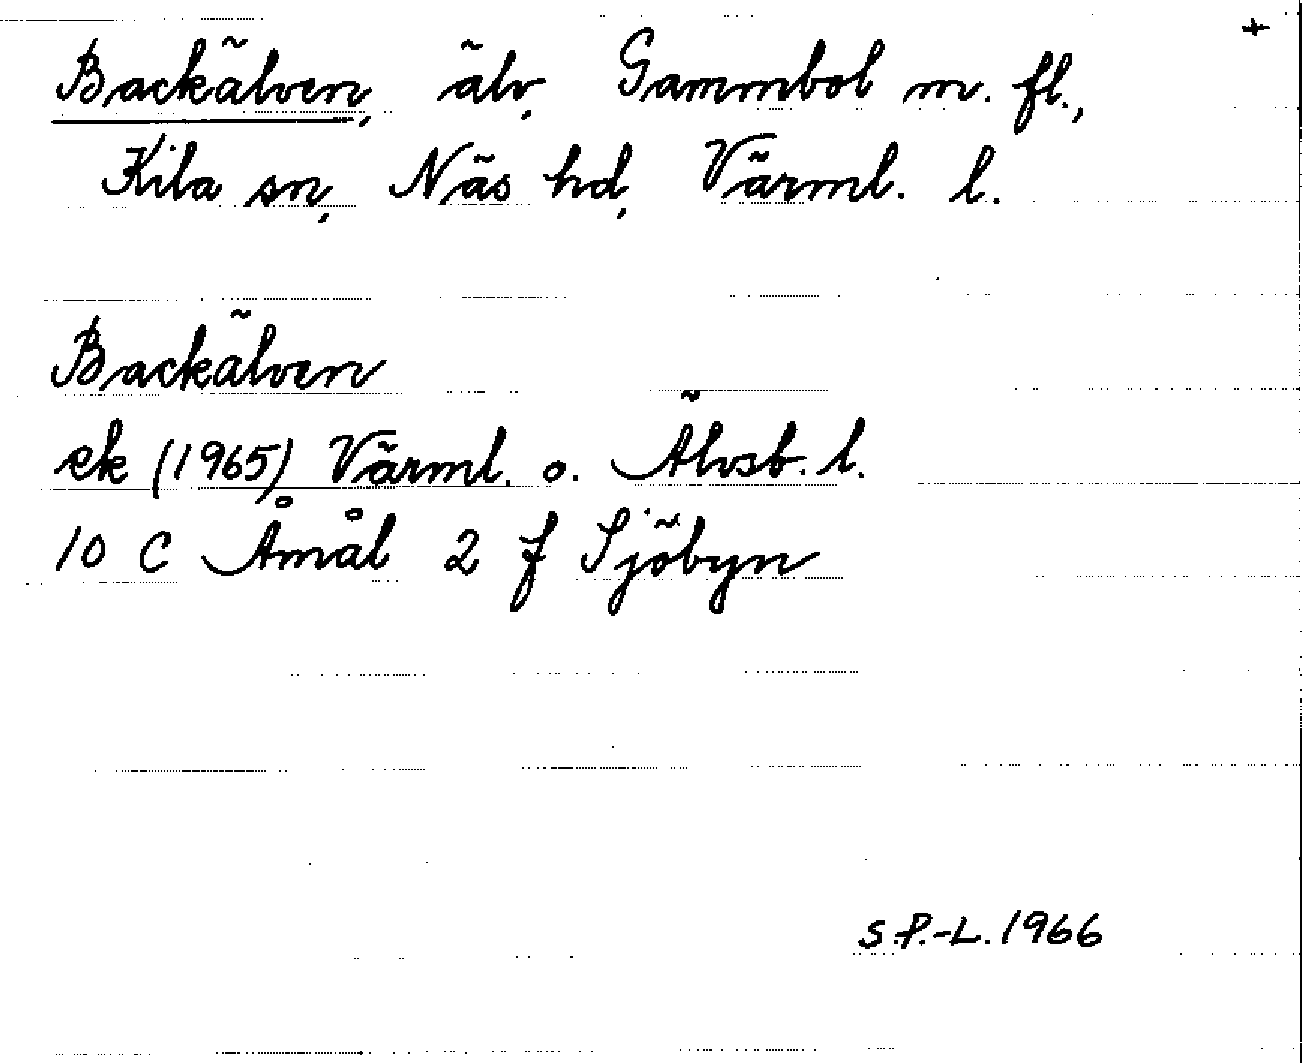 +
Backälven, älv, Gammbol m. fl.,
Kila sn, Näs hd, Värml. l.
Backälven
ek (1965) Värml. o. Älvsb. l.
10 C Åmål 2 f Sjöbyn
S.P.-L. 1966